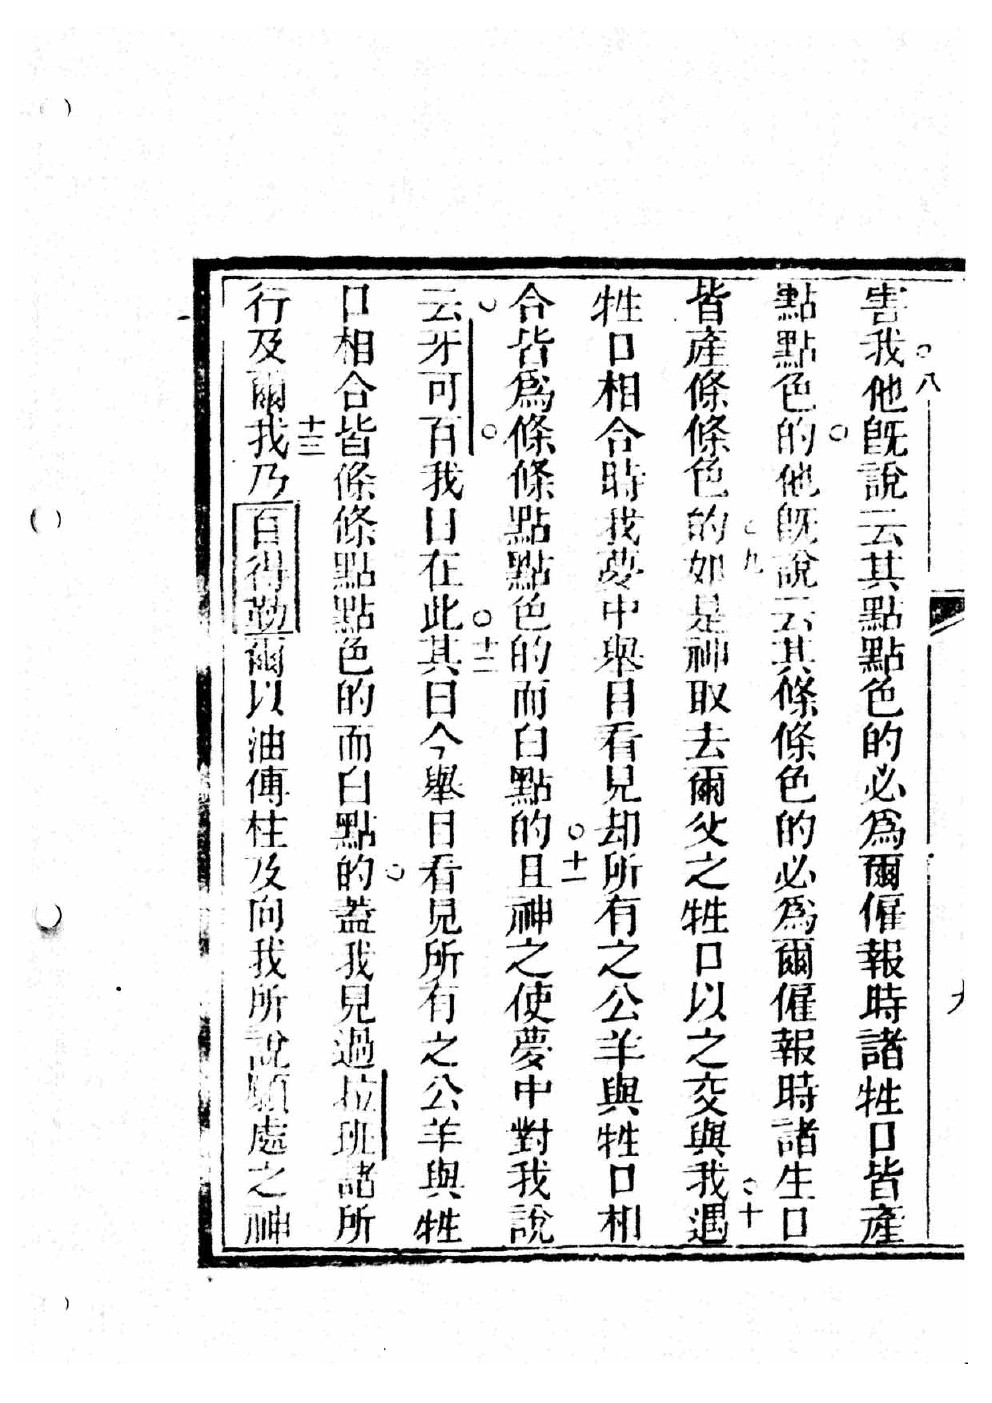 害我他旣說云其點點色的必爲爾僱報時諸牲口皆產
八
點點色的他旣說云其條條色的必爲爾僱報時諸生口
皆產條條色的如是神取去爾父之牲口以之交與我遇
九
十
牲口相合時我夢中舉目看見却所有之公羊與牲口相
合皆爲條條點點色的而白點的且神之使夢中對我說
十一
云牙可百我曰在此其曰今舉目看見所有之公羊與牲
十二
口相合皆條條點點色的而白點的蓋我見過拉班諸所
行及爾我乃百得勒爾以油傅柱及向我所說願處之神
十三